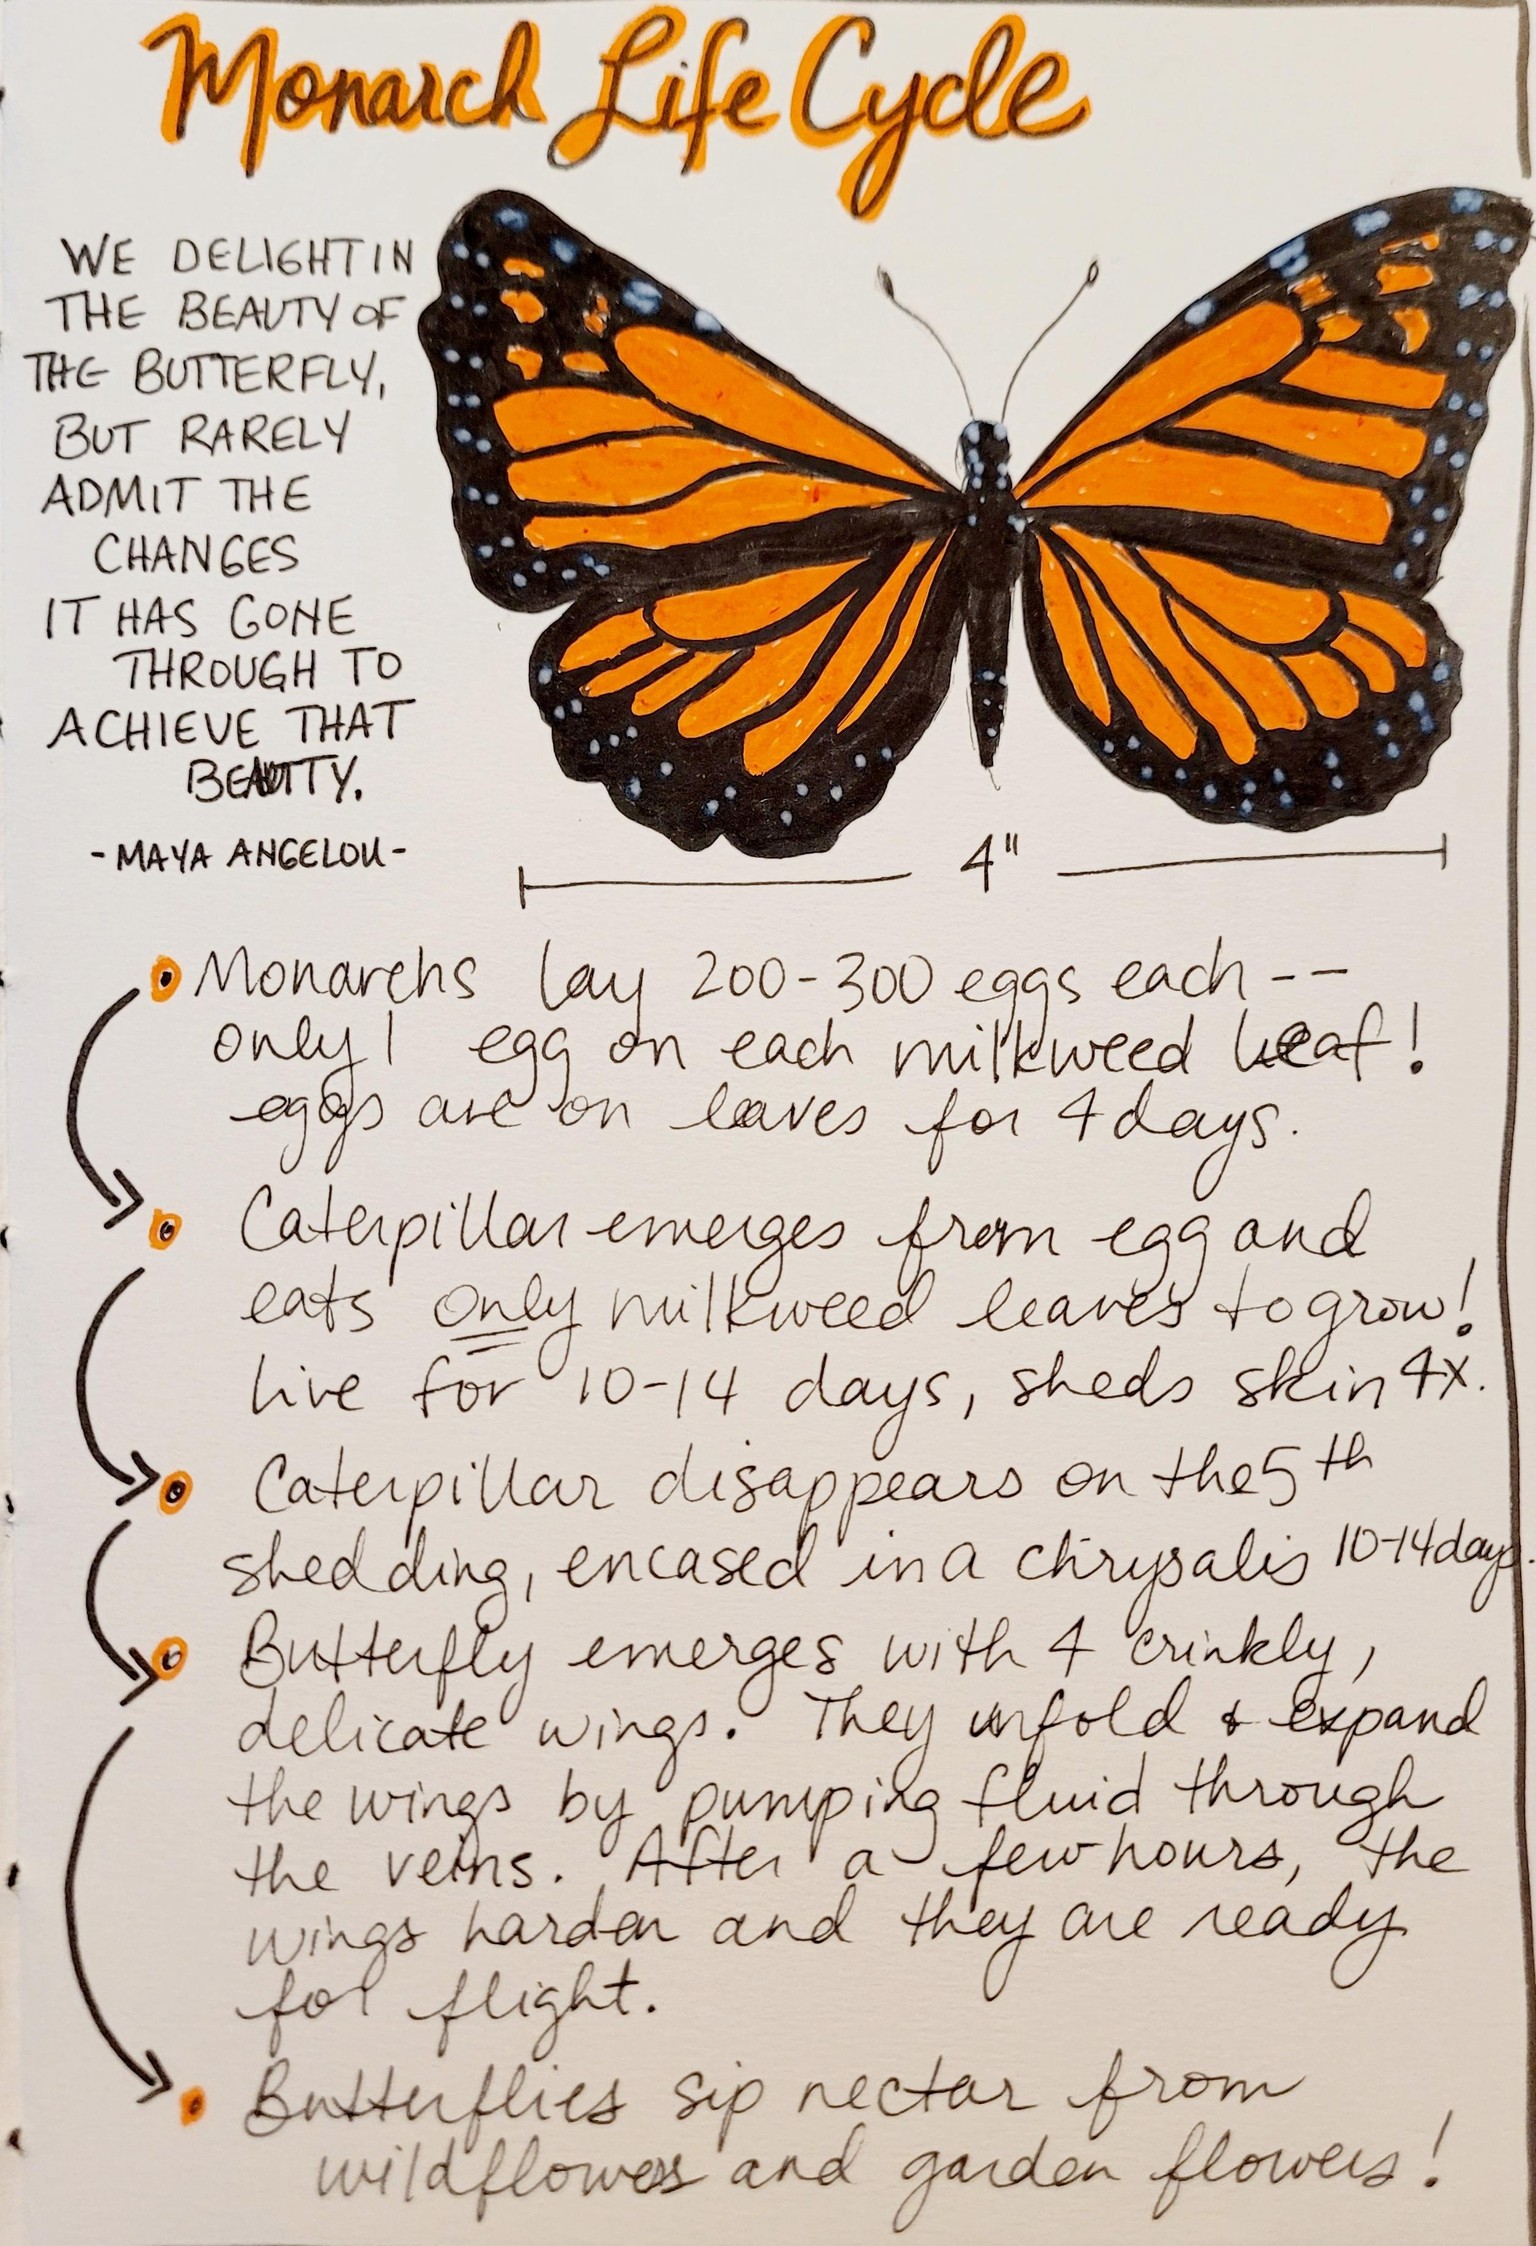 Monarch Life Cycle
WE DELIGHT IN
THE BEAUTY OF
THE BUTTERFLY,
BUT RARELY
ADMIT THE
CHANGES
IT HAS GONE
THROUGH TO
ACHIEVE THAT
BEAUTY.
-MAYA ANGELOU-
4"
Monarchs lay 200-300 eggs each--
only 1 egg on each milkweed leaf!
eggs are on leaves for 4 days.
Caterpillar emerges from egg and
eats only milkweed leaves to grow!
live for 10-14 days, sheds skin 4x.
Caterpillar disappears on the 5th
shedding, encased in a chrysalis 10-14 days.
Butterfly emerges with 4 crinkly,
delicate wings. They unfold & expand
the wings by pumping fluid through
the veins. After a few hours, the
wings harden and they are ready
for flight.
Butterflies sip nectar from
wildflowers and garden flowers!